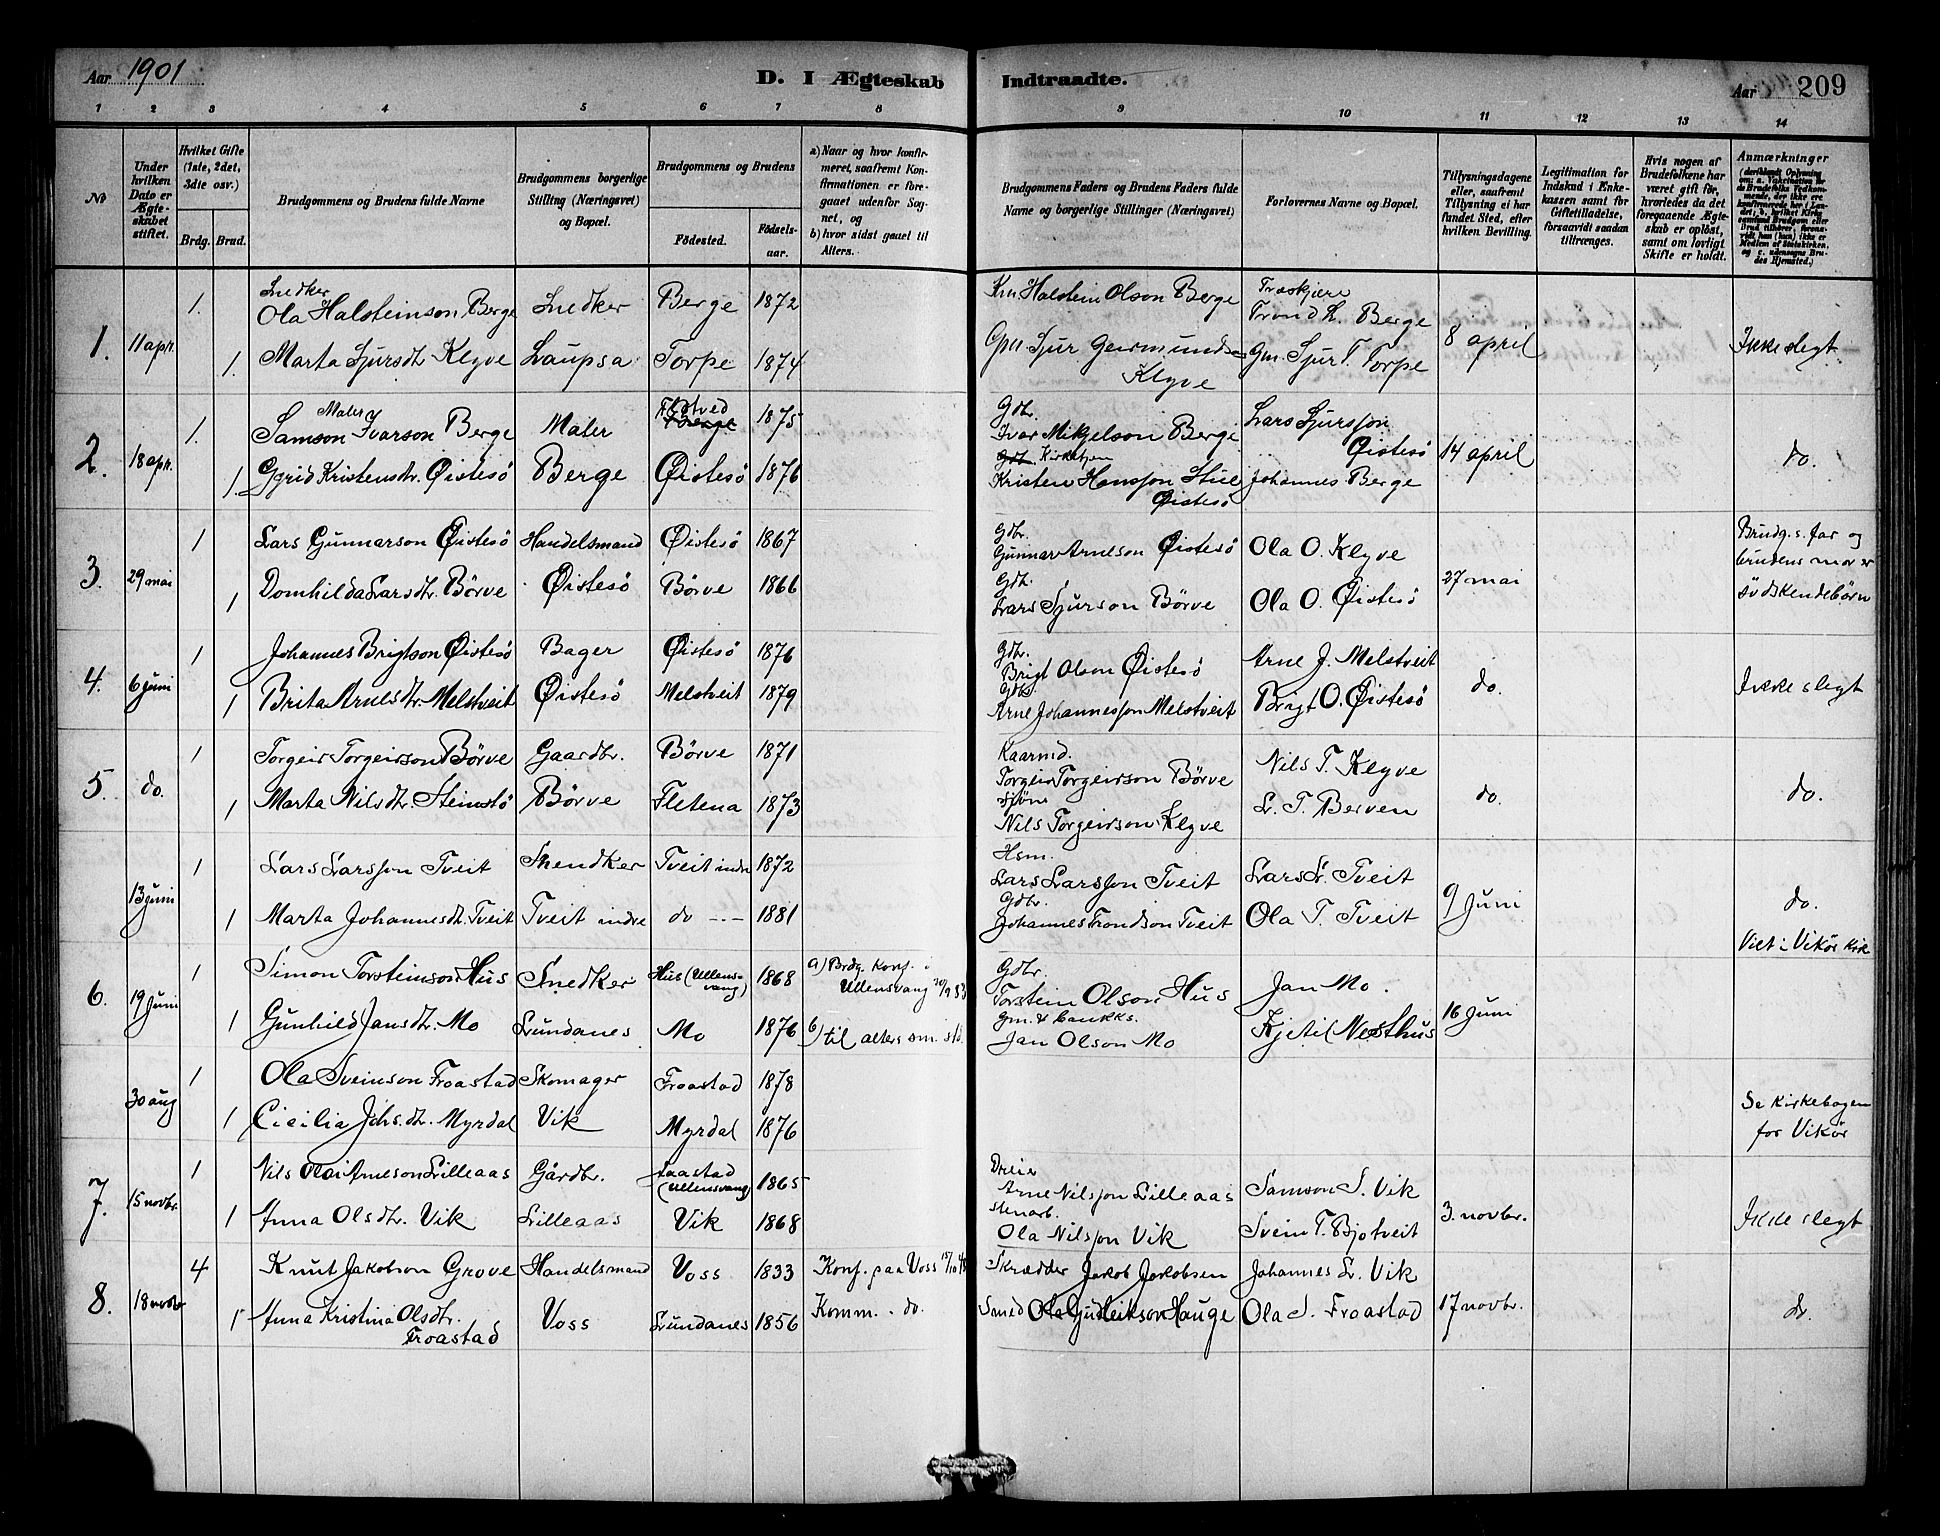 Aar 1901
D. I Ægteskab Indtraadte.
Aar 209
1 2 3 4 5 6 7 8 9 10 11 12 13 14
No
Under hvilken Dato er Ægteskabet stiftet.
Hvilket Gifte (1ste, 2det, 3die osv.)
Brdg. Brud.
Brudgommens og Brudens fulde Navne
Brudgommens borgerlige Stilling (Næringsvei) og Bopæl.
Brudgommens og Brudens
Fødested.
Fødselsaar.
a) Naar og hvor konfirmeret, saafremt Konfirmationen er foregaaet udenfor Sognet, og
b) hvor sidst gaaet til Alters.
Brudgommens Faders og Brudens Faders fulde Navne og borgerlige Stillinger (Næringsvei)
Forlovernes Navne og Bopæl.
Tillysningsdagene eller, saafremt Tillysning ei har fundet Sted, efter hvilken Bevilling.
Legitimation for Indskud i Enkekassen samt for Giftetilladelse, forsaavidt saadan tiltrænges.
Hvis nogen af Brudefolkene har været gift før, hvorledes da det foregaaende Ægteskab er opløst, samt om lovligt Skifte er holdt.
Anmærkninger
1. 11 apr.
1. Snedker
Ola Halsteinson Berge Snedker Berge 1872
Halstein Olson Berge
Trond L. Berge
8 april
Ikke slegt
1. Marta Sjursdtr. Klyve Laupsa Torpe 1874
Sjur Geirmundsen Klyve
Gm. Sjur T. Torpe
2. 18 apr.
1. Maler
Samson Ivarson Berge Maler Berge 1875
Gdbr.
Ivar Mikjelson Berge
Lars Sjursson Øistesö
14 april
do.
1. Gyrid Kristensdtr. Øistesö Berge Øistesö 1876
Kirketjen
Kristen Hansson Stue Øistesö
Johannes Berge
3. 29 mai
1 Lars Gunnarson Øistesö Handelsmand Øistesö 1867
Gdbr.
Gunnar Arneson Øistesö
Ola O. Klyve
27 mai
Brudg.s far og brudens mor er södskendebörn
1 Domhilda Larsdtr. Börve Øistesö Börve 1866
Gdb.
Lars Sjurson Börve
Ola O. Øistesö
4. 6 Juni
1 Johannes Brigtson Øistesö Bager Øistesö 1876
Gdbr.
Brigt Olson Øistesö
Arne J. Melstveit
do.
Ikke slegt
1 Brita Arnesdtr. Melstveit Øistesö Melstveit 1879
Gdbr.
Arne Johannesson Melstveit
Brigt O. Øistesö
5. do.
1 Torgeir Torgeirson Börve Gaardbr. Börve 1871
Kaarmd.
Torgeir Torgeirson Börve
Nils T. Klyve
do.
do.
1 Marta Nilsdtr. Steinstö Börve Fletena 1873
Nils Torgeirson Klyve
L. T. Berven
13 Juni
1 Lars Larsson Tveit Snendker Tveit indre 1872
Hsm.
Lars Larsson Tveit
Lars L. Tveit
9 Juni
do.
1 Marta Johannesdtr. Tveit Tveit indre do -.- 1881
Gdbr.
Johannes Trondson Tveit
Ola T. Tveit
Viet i Vikör kirk
6. 19 Juni
1 Simon Torsteinson Hus Snedker Hus (Ullensvang) 1868
a) Brdg. konf. i Ullensvang 30/9 83
Gdbr.
Torstein Olson Hus
Jan Mo.
16 Juni
1 Gunhild Jansdtr. Mo Lundanes Mo 1876
b) til alters
Gm. &
Jan Olson Mo
Kjetil Nesthus
30 aug
1 Ola Sveinson Froastad Skomager Froastad 1878
Se kirkebogen for Vikör
1 Cicilia Johs.dtr. Myrdal Vik Myrdal 1876
7. 15 novbr.
1 Nils Olai Arneson Lilleaas Gårdbr. (Ullensvang) 1865
Dreier
Arne Nilsson Lilleaas
Samson S. Vik
3. novbr.
Ikke slegt
1 Anna Olsdtr. Vik Lilleaas Vik 1868
Stenarb.
Ola Nilsson Vik
Svein T. Bjotveit
8. 18 novbr
4 Knut Jakobson Grove Handelsmand Voss 1833
Konf. paa Voss
Skrædder Jakob Jakobsen
Johannes L. Vik
17 novbr.
do.
1 Anna Kristina Olsdtr. Froastad Voss Lundanes 1856
Komm. do.
Smed Ola Gudleikson Hauge
Ola S. Froastad